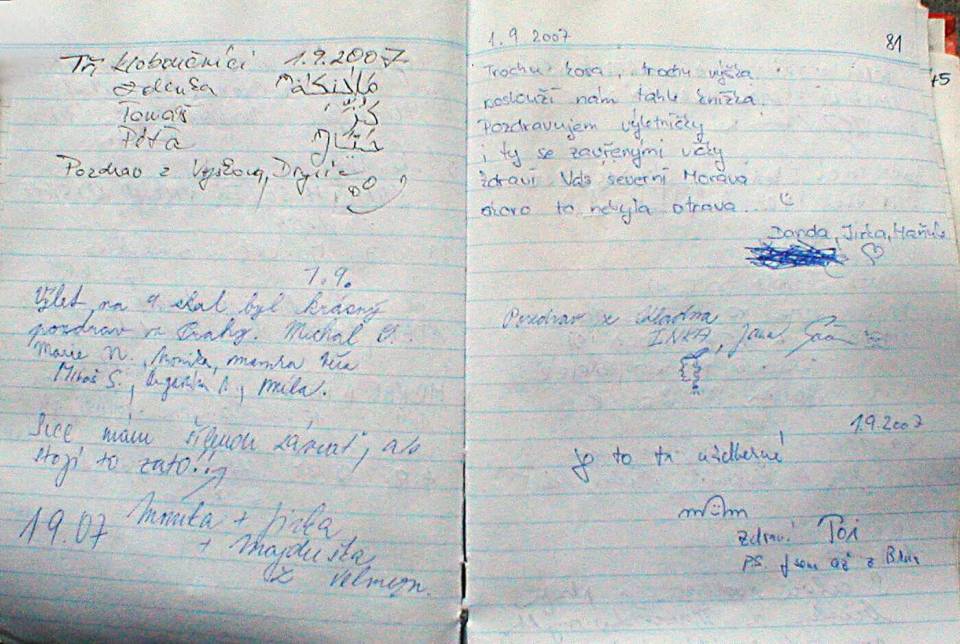 Tři kloboučníci 1.9.2007
Zdenša
Tomáš
Péťa
Pozdrav z Vyškova,
1.9.
Výlet na 9 skal byl krásný
pozdrav z Prahy. Michal
Marie N., Monika, mamka Věra
Miloš S., Mila.
Sice mám šílenou závrať, ale
stojí to zato!!
1.9.07 Monika + Jirka
+ Majduška
z
81
1.9.2007
Trochu kosa, trochu výška
poslouží nám tahle knížka.
Pozdravujem výletníčky
i ty se zavřenými víčky
zdraví Vás severní Morava
skoro to nebyla otrava.
Danda, Jirka,
Pozdrav z Kladna
INKA, Jana
1.9.2007
Je to tu nádherné!
Zdraví
PS. Jsem až z Brna
45